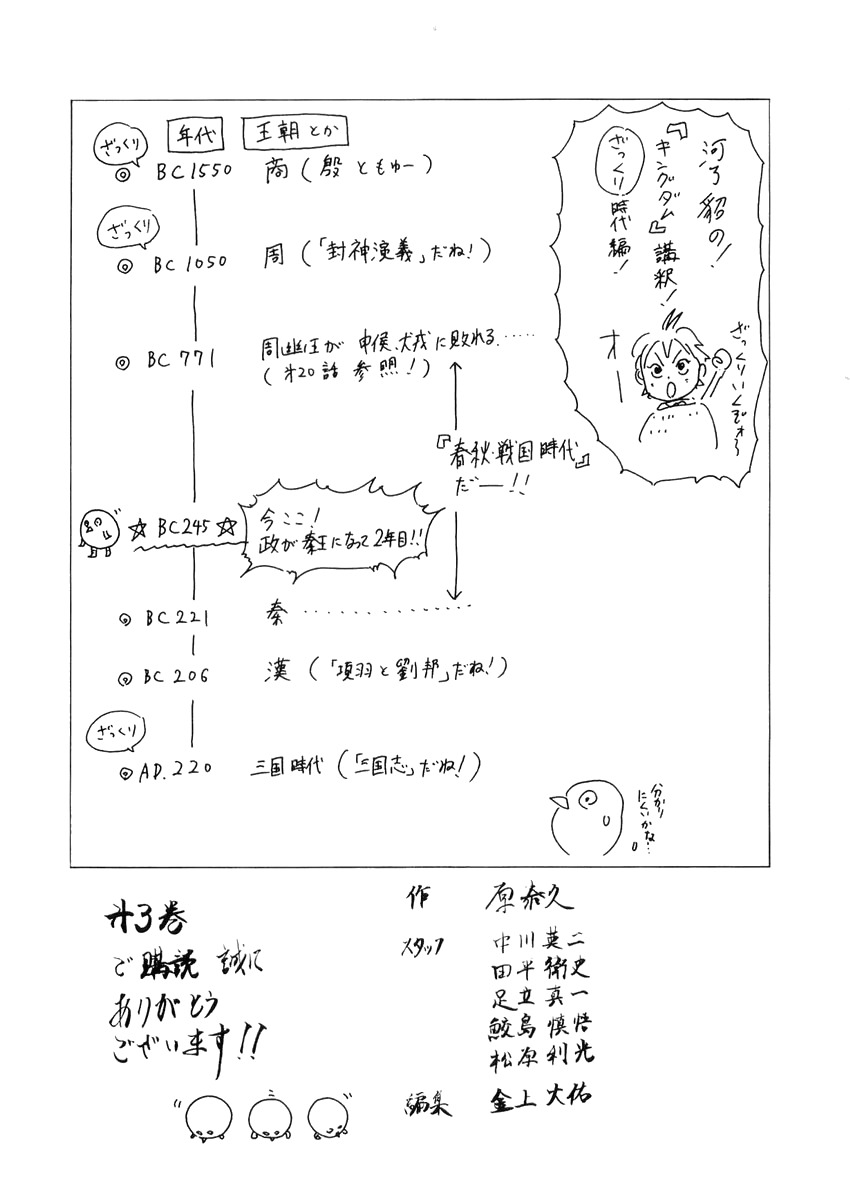 河了貂の!
『キングダム』講釈!
ざっくり時代編!
ざっくりいくぞォ〜
オー
年代 王朝とか
ざっくり
◎ BC1550 商(殷ともゆー)
ざっくり
◎ BC1050 周(「封神演義」だね!)
◎ BC771 周幽王が申侯、犬戎に敗れる……
(第20話 参照!)
『春秋・戦国時代』
だー!!
☆BC245☆ 今ここ!
政が秦王になって2年目!!
◎ BC221 秦……………
◎ BC206 漢(「項羽と劉邦」だね!)
ざっくり
◎ AD.220 三国時代(「三国志」だね!)
分かり
にくいかな…
第3巻
ご購読 誠に
ありがとう
ございます!!
作 原泰久
スタッフ 中川英二
田平衛史
足立真一
鮫島慎悟
松原利光
編集 金上大佑